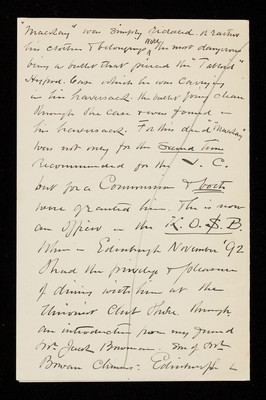 "Mackay" was simply riddled. or rather
his clothes & belongings were the most dangerous
being a bullet that pierced the "Tabloid"
Hypod. Case which he was carrying
in his haversack. the bullet going clean
through the case & was found in
his haversack. For this deed "Mackay"
was not only for the second time
recommended for the V. C.
but for a Commission & both
were granted him. He is now
an officer in the K. O. S. B.
When in Edinburgh November '92
I had the privilege & pleasure
of dining with him at the
Unionist Club there. through
an introduction from my friend
Mr. Jacob Bowman. Son of Mr.
Bowman Edinburgh &